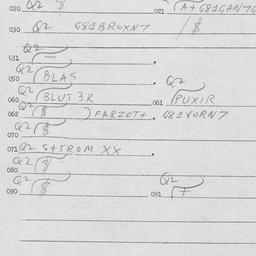 020 Q2 021 (A+G81GAN7G
030 Q2 G81BROXN7 /$
031 Q2 (=
050 Q2 (BLAS
060 Q2 (BLUT3R 061 Q2 (PUXIR
062 Q2 ($ ) FARZOT+. G81VORN7
070 Q2 ($
071 Q2 S+TROM XX.
080 Q2 ($
090 Q2 ($ 091 Q2 (+